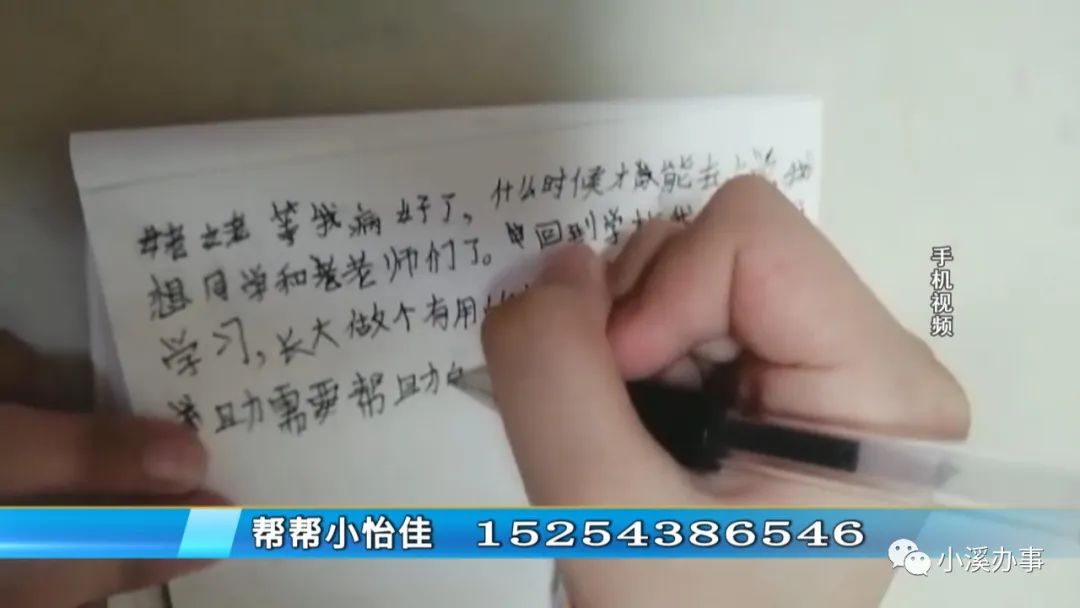 姥姥等我病好了，什么时候才能去上学 我
想同学和老老师们了。 回到学校
学习，长大做个有用的
助需要帮助的
手机视频
帮帮小怡佳 15254386546
小溪办事